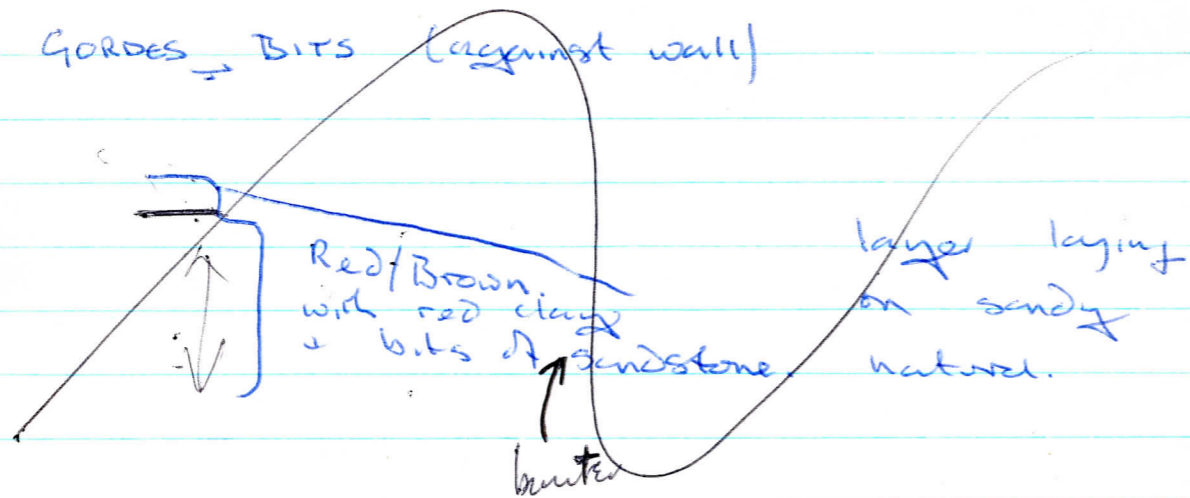 GORDES BITS (against wall)
Red/Brown.
with red clay
+ bits of sandstone.
layer laying
on sandy
natural.
bunter